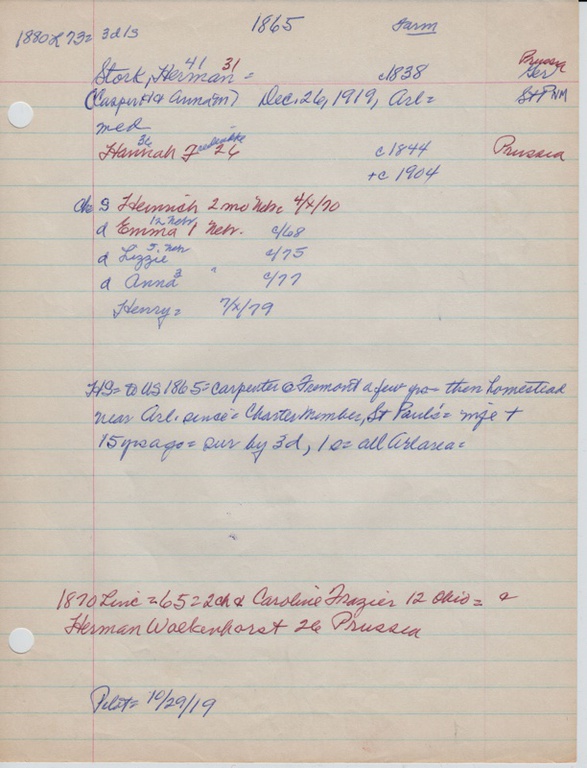 1880 L 73= 3d 1s
1865
Farm
41 31
Stork, Herman =
c1838
Prussia
Ger
(Casper H & Anna m) Dec. 26, 1919, Arl=
St P NM
med
36
Hannah F 26
c1844
Prussia
+c 1904
ch= s Heinrich 2 mo Nebr. 4/x/70
12 Nebr
d Emma 1 Nebr. c/68
5 Nebr
d Lizzie c/75
d Anna 3 " c/77
Henry= 7/x/79
HS= to US 1865= carpenter @ Fremont a few yrs= then homestead
near Arl. since= Charter Member, St Paul's= wife +
15 yrs ago= sur by 3d, 1s= all Arl area=
1870 Linc = 65 = 2ch & Caroline Frazier 12 Ohio= &
Herman Wolkenhorst 26 Prussia
Pilot= 10/29/19